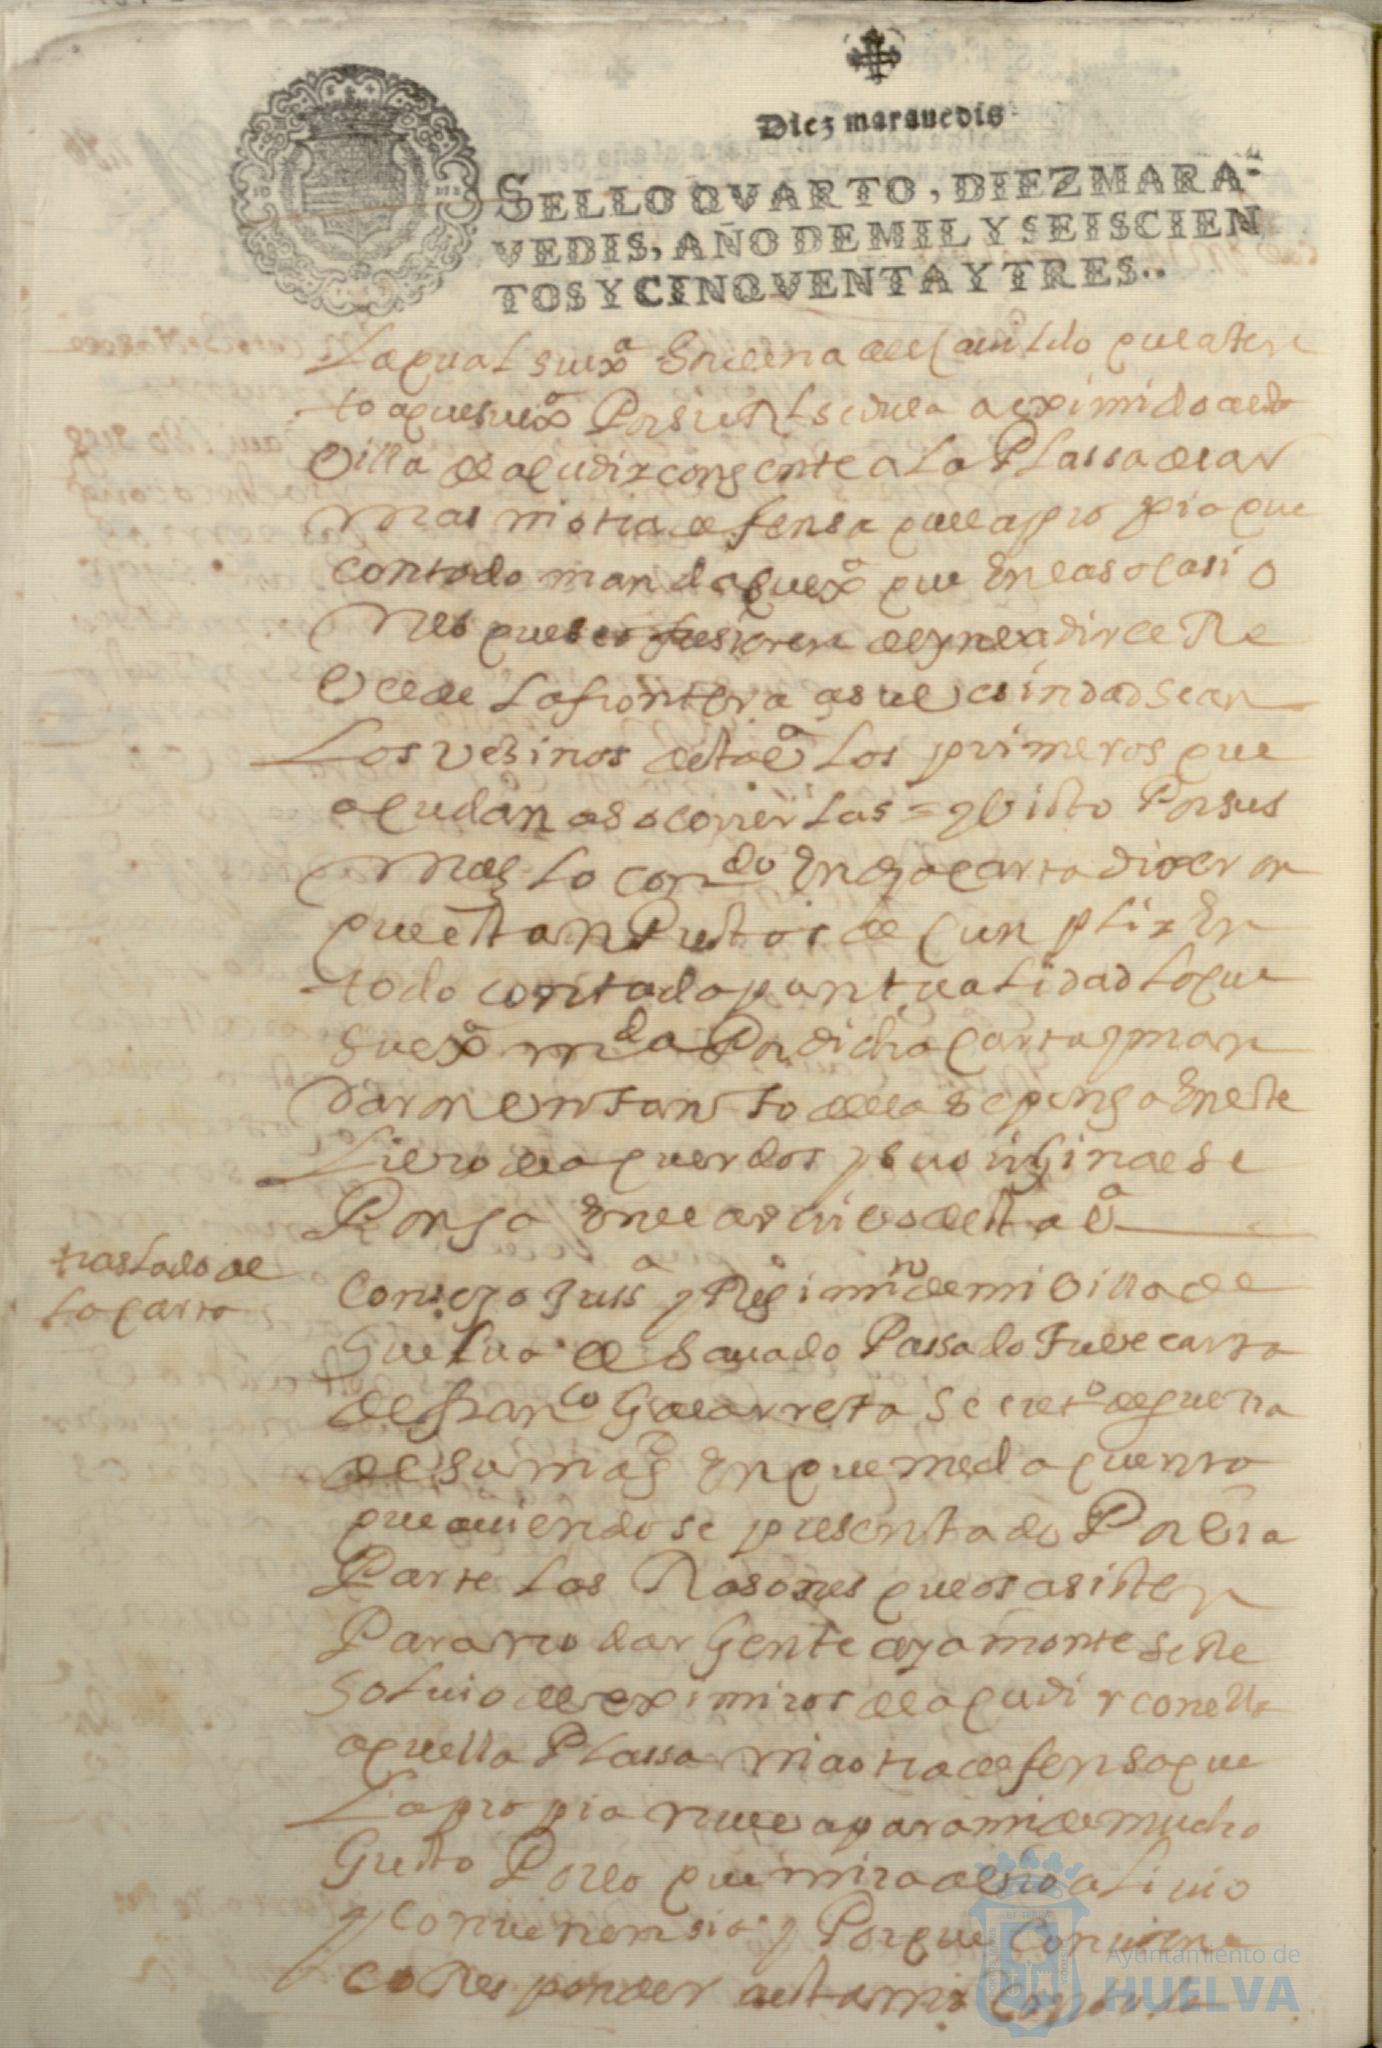 Diez marauedis
SELLO QVARTO, DIEZ MARA-
VEDIS, AÑO DE MIL Y SEISCIEN
TOS Y CINQVENTA Y TRES..
La qual su exª hordena al Cauildo que aten
to a que su exª Por su Rl sedula a eximido a esta
Villa de acudir con gente a la Plassa de lar
mas ni otra defensa que a pro pia que
con todo manda su exª que en las ocasio
nes que se ofresieren de ynbadir el Re
velde la frontera a su vesindad sean
Los vezinos desta vª los primeros que
acudan a socorrerlas = y visto Por sus
mds lo condo En dha carta dixeron
que estan Prestos de cunplir En
todo con toda puntualidad lo que
su exª mda Por dicha carta y man
daron en tanto della se ponga En este
Libro de acuerdos y su orijinal se
Ponga En el archibo desta vª
traslado de
la carta
Consejo Jussª y Regimnº de mi Villa de
Guelua el Sauado Passado Tube carta
de franco Galarreta Secretº de guerra
de su magd En que me da quenta
que auiendose presentado Por vra
Parte las Rasones que os asisten
Para no dar gente a ayamonte se Re
soluio el eximiros de acudir con ella
a quella Plassa ni a otra defensa que
La propia nueba para mi de mucho
Gusto Por lo que mira a buestro aliuio
y conuenensia y Porque Conuiene
coRes ponder a esta mrd Con
Ayuntamiento de
HUELVA